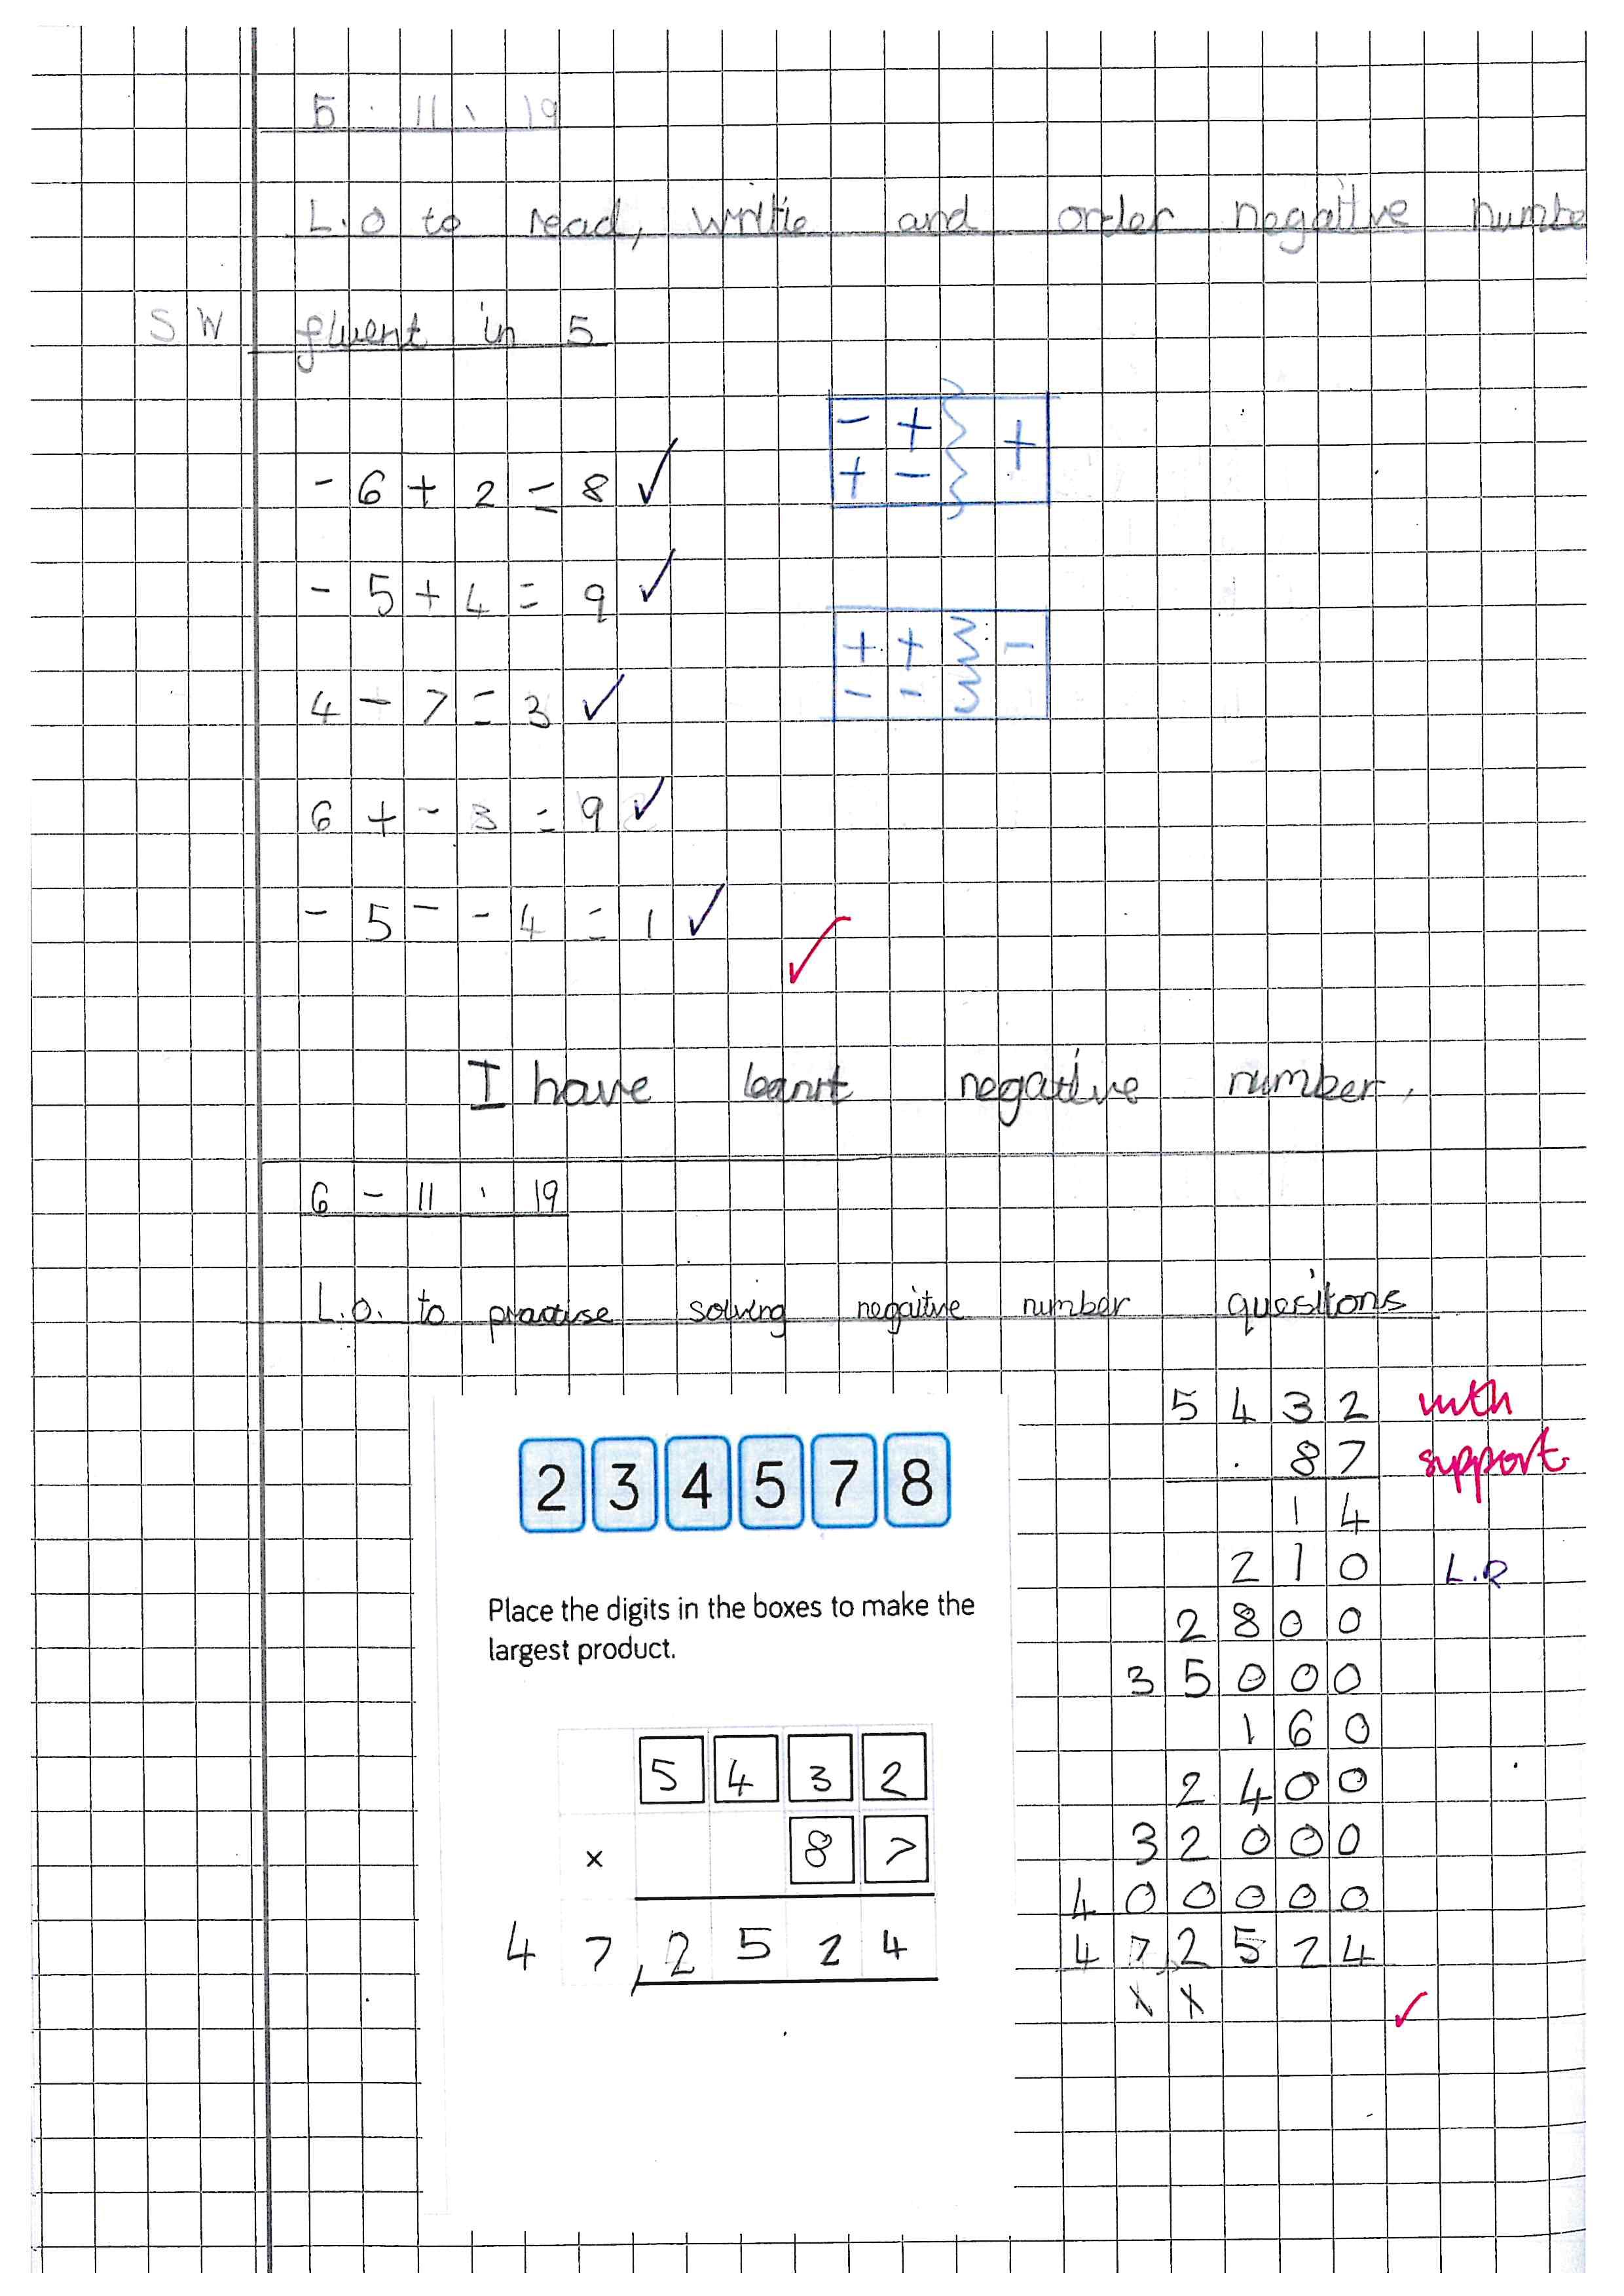 5 . 11 . 19
L.O to read, writie and order negaitve numbe
SW fluent in 5
- 6 + 2 = 8 ✓
- +
+ -
+
- 5 + 4 = 9 ✓
+ +
- -
-
4 - 7 = 3 ✓
6 + - 3 = 9 ✓
- 5 - - 4 = 1 ✓
✓
I have leanrt negative number.
6 - 11 . 19
L.O. to practise solving negaitve number quesitons
2 3 4 5 7 8
Place the digits in the boxes to make the
largest product.
5 4 3 2
× 8 7
4 7 , 2 5 2 4
5 4 3 2 with
. 8 7 support.
1 4
2 1 0 L.R
2 8 0 0
3 5 0 0 0
1 6 0
2 4 0 0
3 2 0 0 0
4 0 0 0 0 0
4 7 , 2 5 2 4
✓